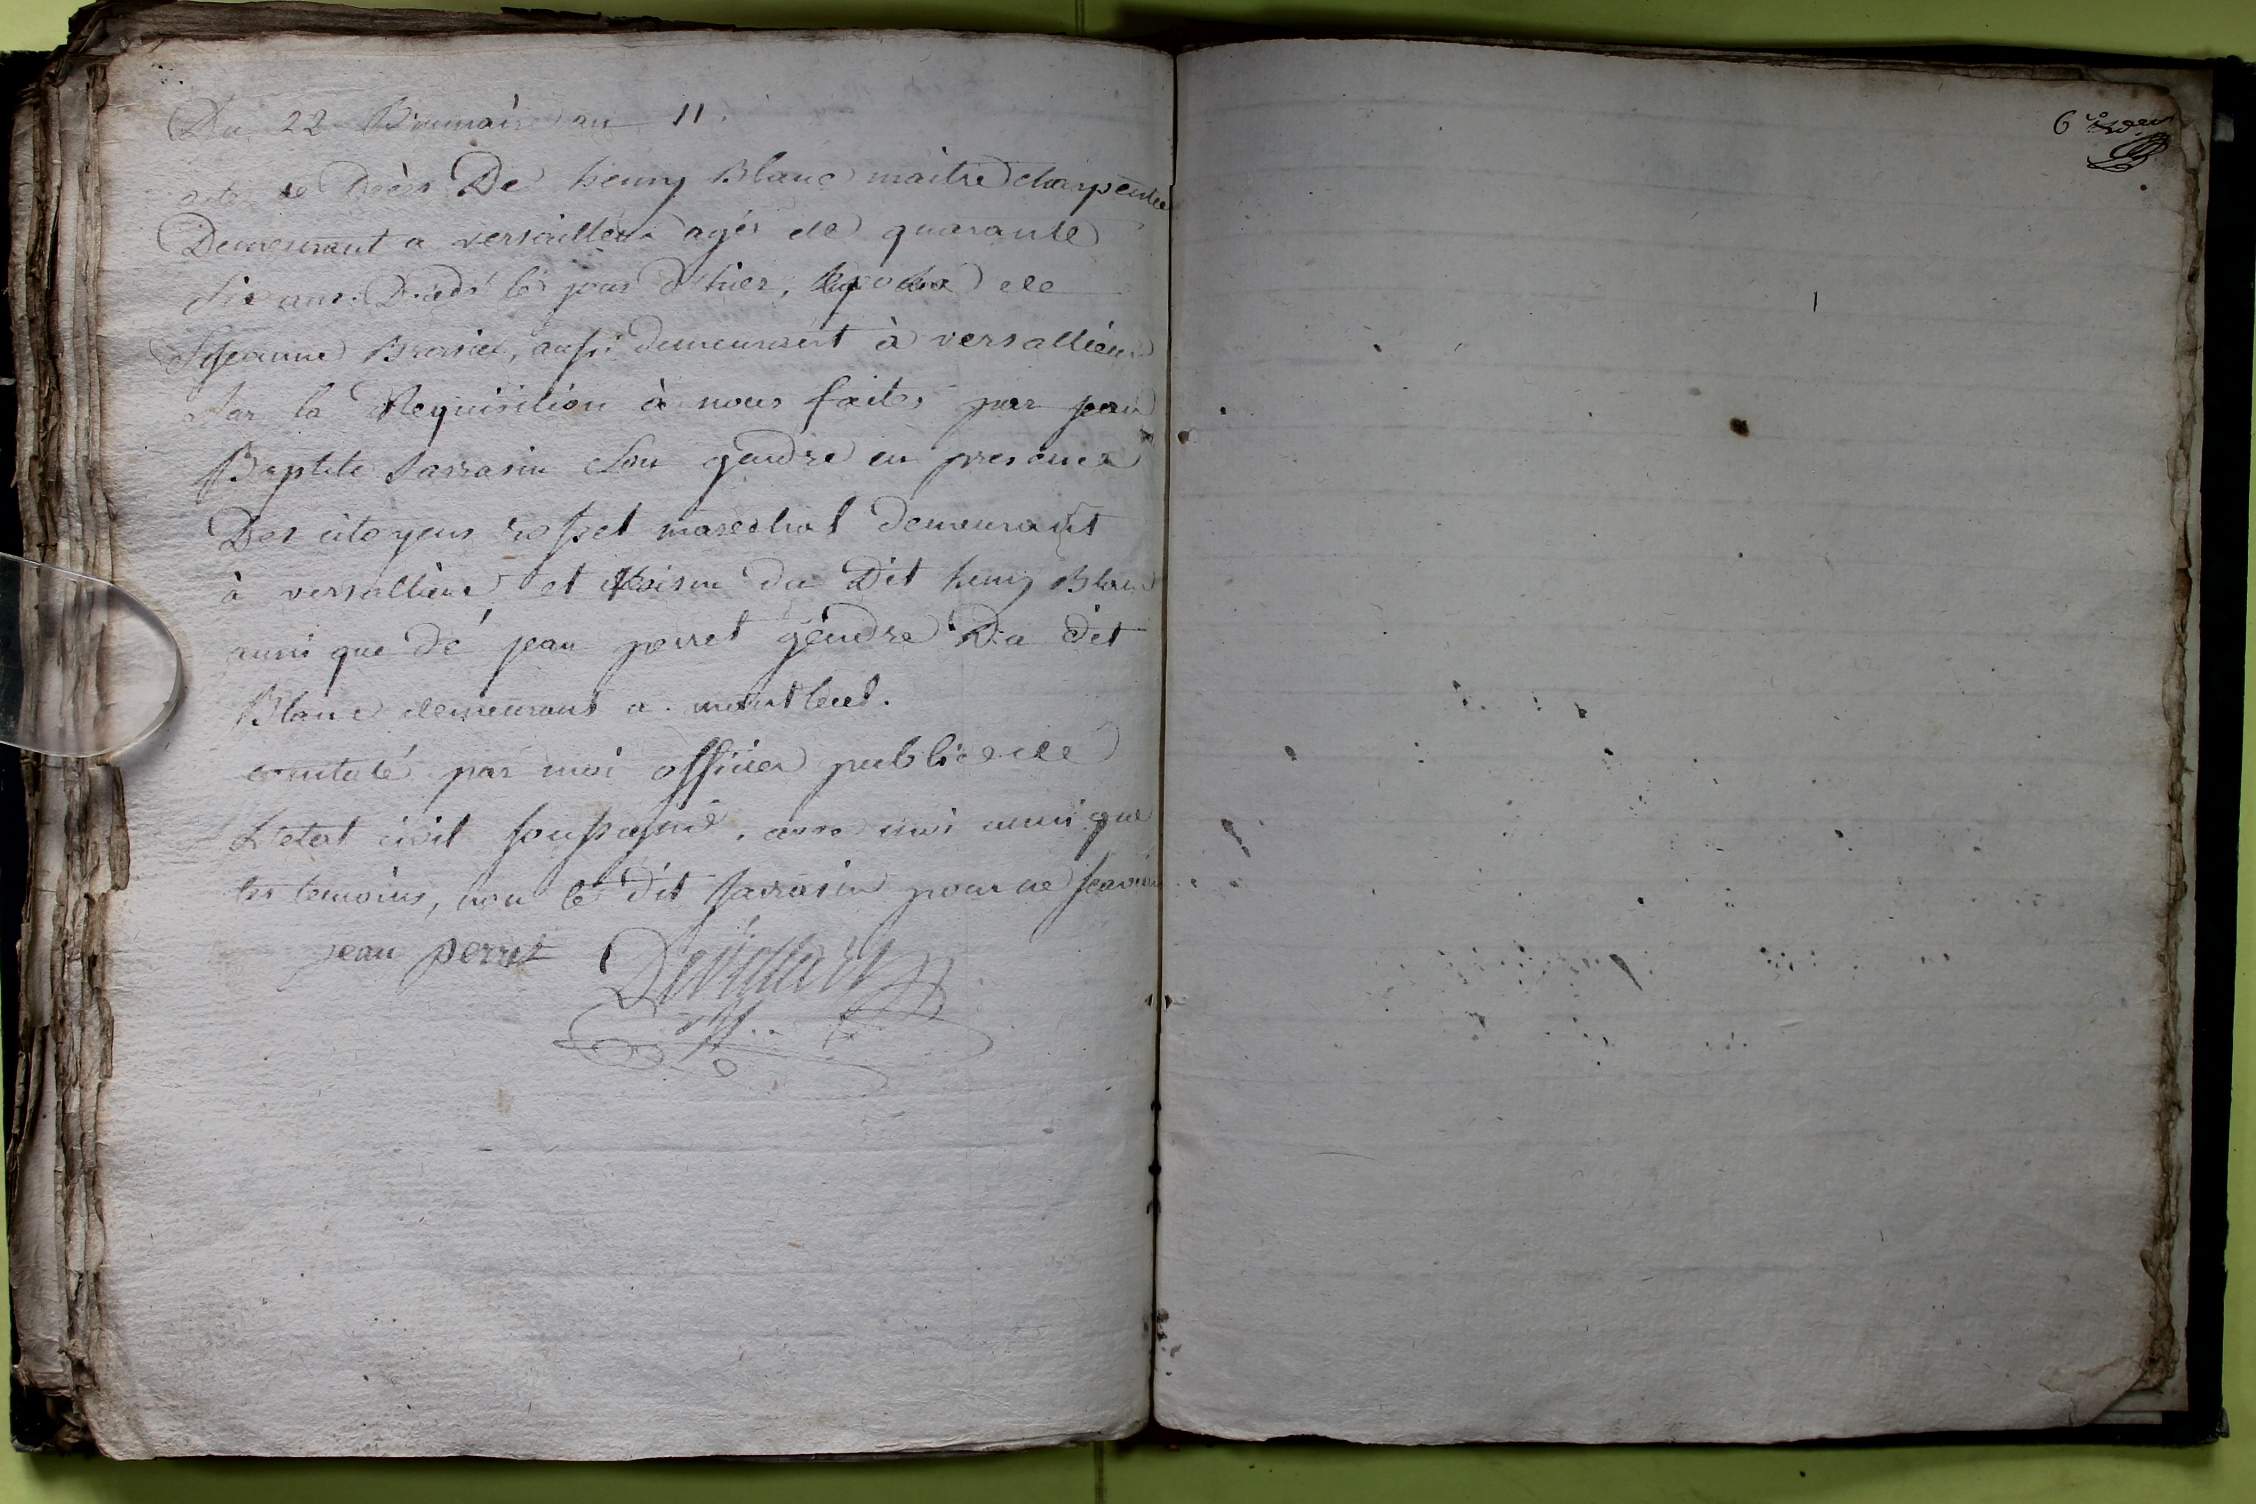 Du 22 Brumaire an 11.
acte de Decès De henry Blanc maitre charpentier
Demeurant a versailleux agés de quarante
six ans. Dcedé le jour d'hier, Epoux de
Jeanne Brasier, aussi demeurant à versallieux
Sur la Requisition à nous faites par jean
Baptite Sarrasin Son gendre en presence
Des citoyens rosset marechal demeurant
à versallieux et Voisin du Dit henry Blanc
ainsi que dé jean perret gendre Du dit
Blanc demeurant a montluel.
constaté par moi officier public de
L'etat civil soussigné, avec moi ainsi que
les temoins, non le dit sarrasin pour ne scavoir
jean perret
6